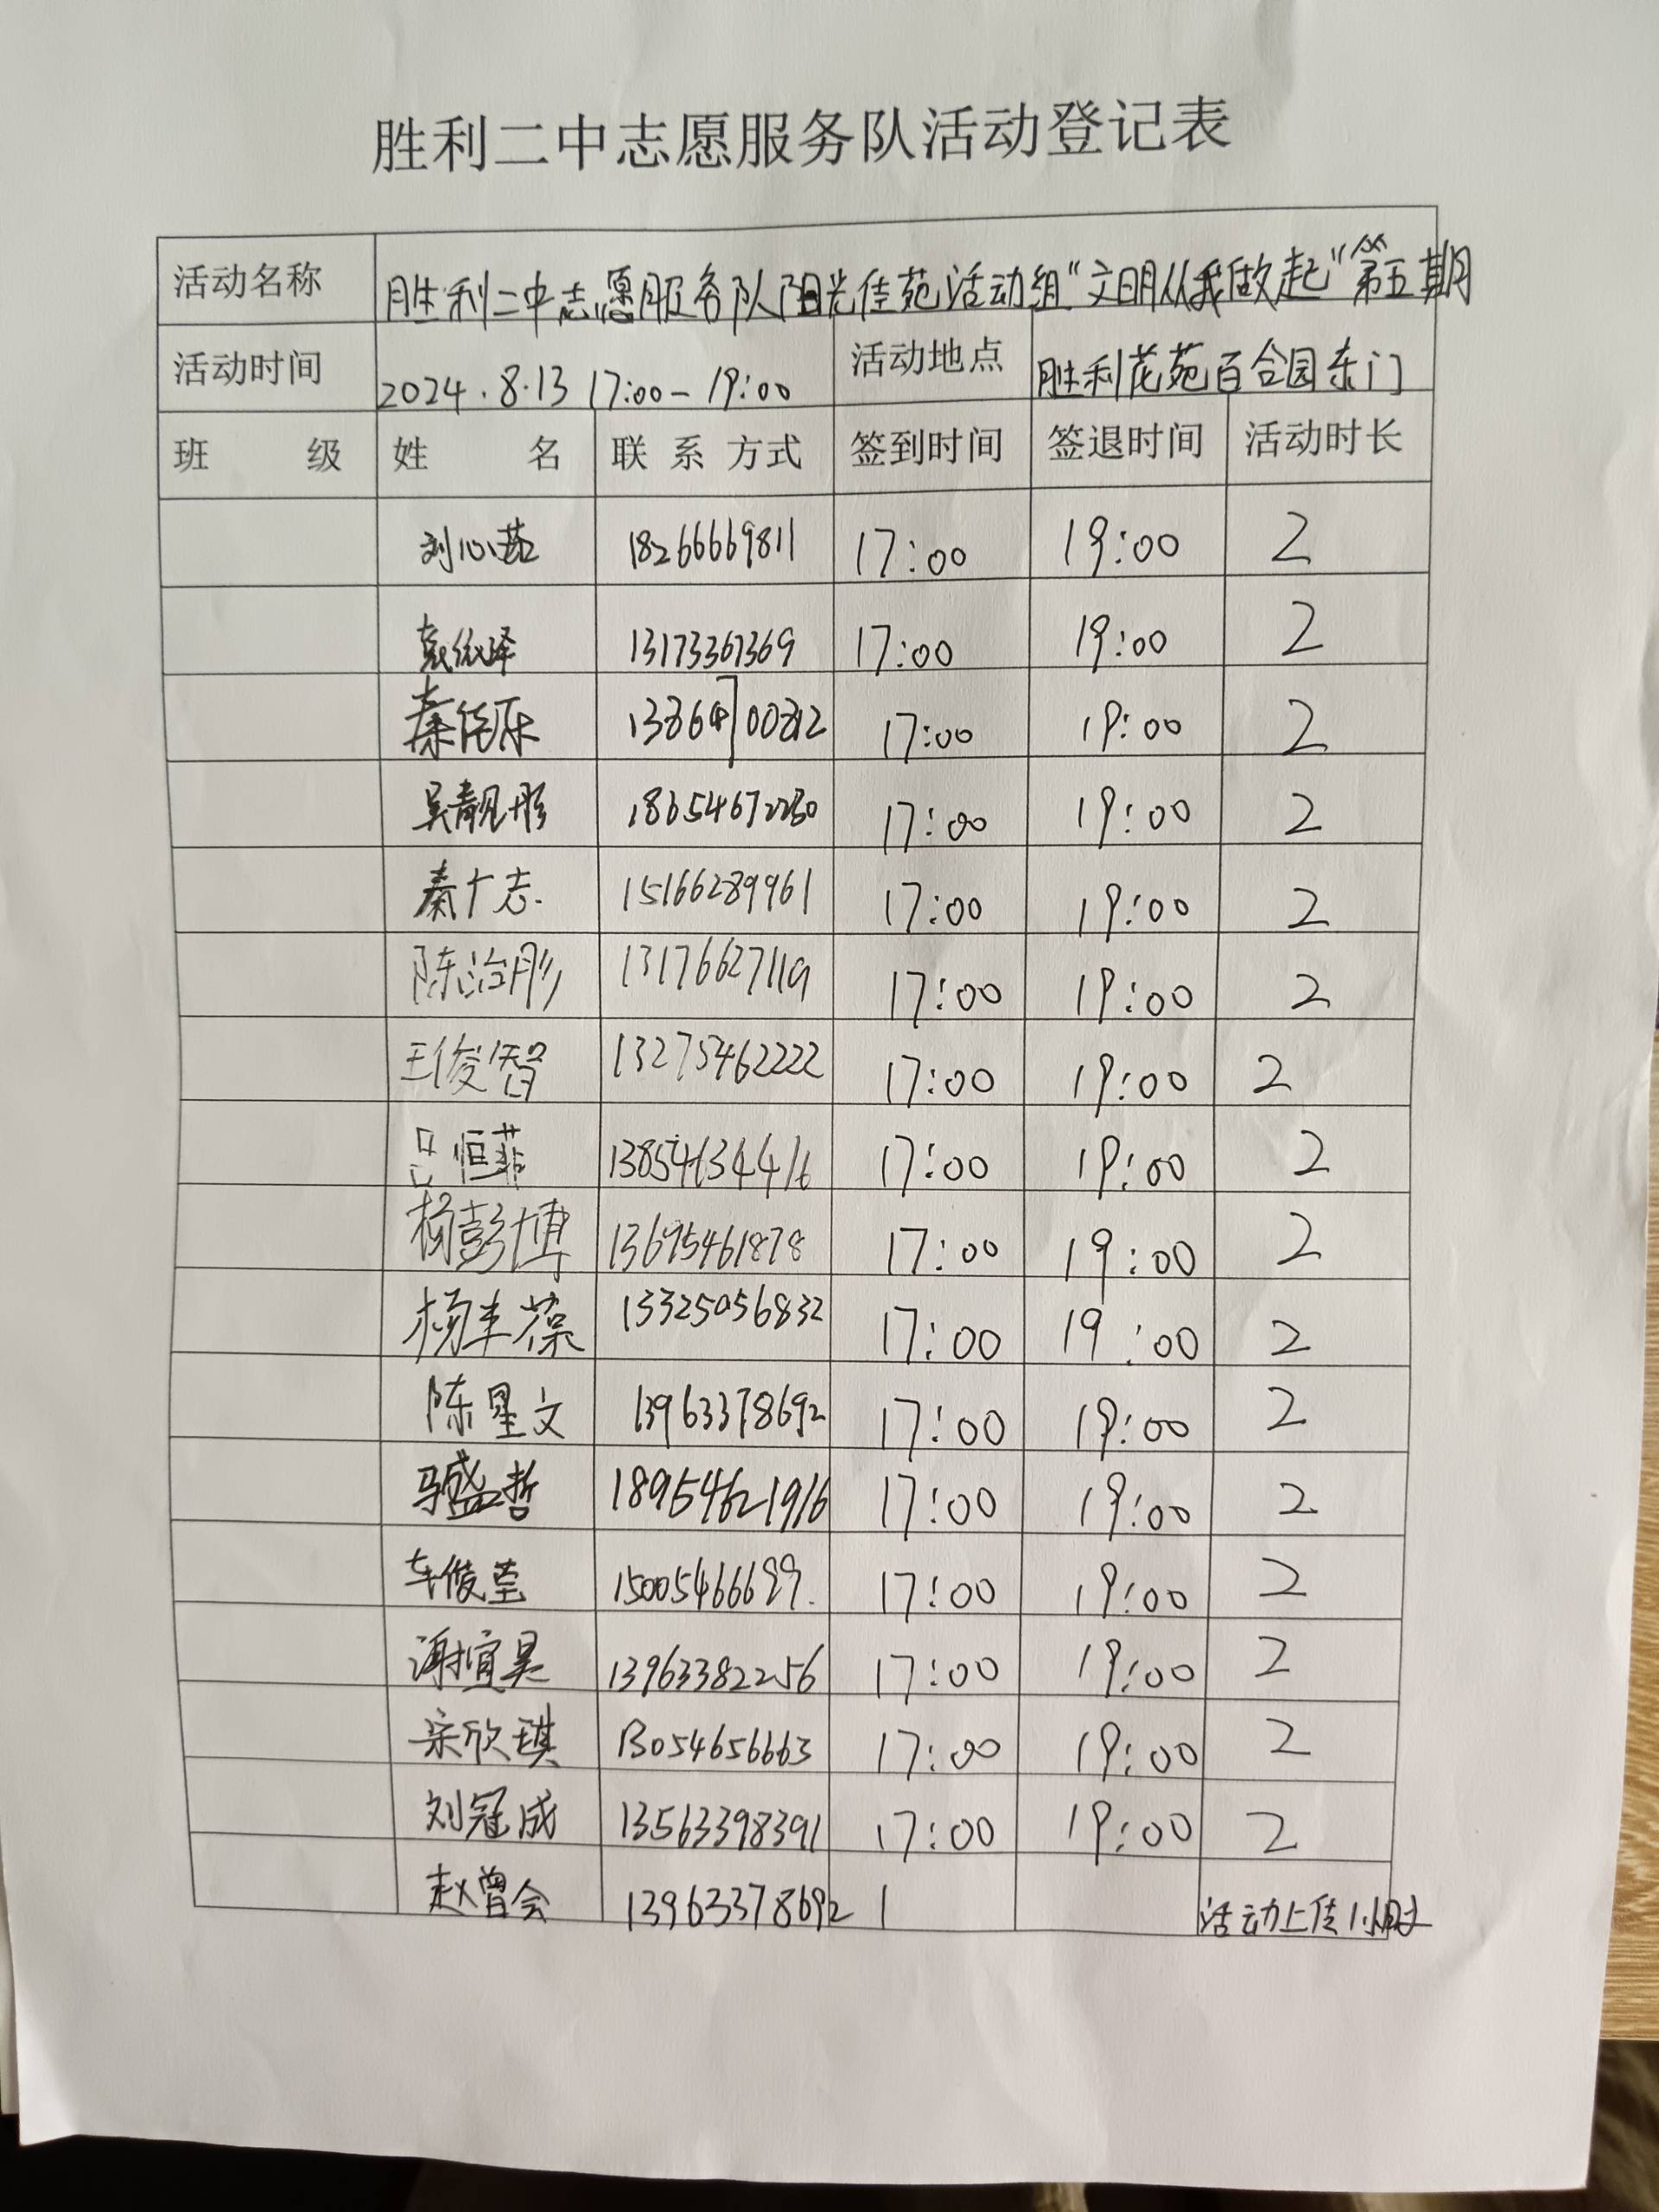 胜利二中志愿服务队活动登记表
活动名称 胜利二中志愿服务队阳光佳苑活动组“文明从我做起”第五期
活动时间 2024.8.13 17:00-19:00 活动地点 胜利花苑百合园东门
班 级 姓 名 联系方式 签到时间 签退时间 活动时长
刘心茹 18266669811 17:00 19:00 2
13173367369 17:00 19:00 2
17:00 19:00 2
吴靓彤 17:00 19:00 2
秦十志 15166289961 17:00 19:00 2
陈治彤 13176627119 17:00 19:00 2
王俊智 13275462222 17:00 19:00 2
吕恒菲 13854634416 17:00 19:00 2
杨彭博 13695461878 17:00 19:00 2
杨丰葆 13325056832 17:00 19:00 2
陈星文 13963378692 17:00 19:00 2
马盛哲 18954621916 17:00 19:00 2
车俊莹 15005466699. 17:00 19:00 2
谢宜昊 13963382256 17:00 19:00 2
宋欣琪 13054656663 17:00 19:00 2
刘冠成 13563398391 17:00 19:00 2
赵曾会 13963378692 1 活动上传1小时